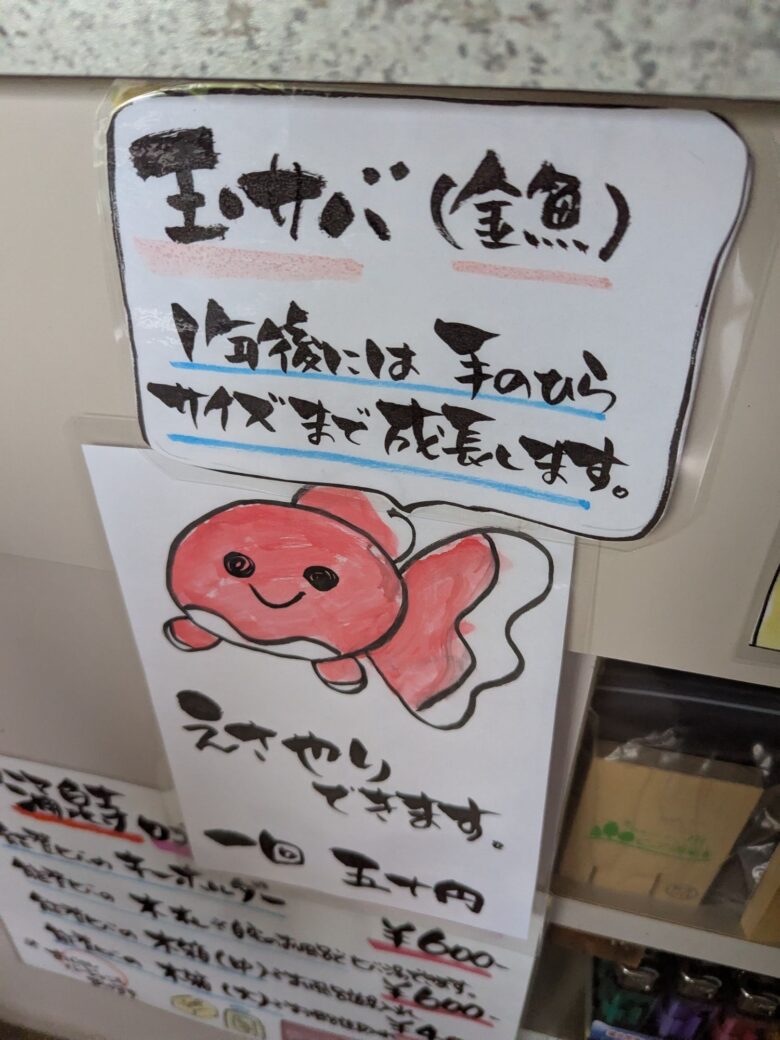 玉サバ（金魚）
1年後には 手のひら
サイズまで 成長します。
えさやり
できます。
一回 五十円
キーホルダー
¥600-
木箱(中)
¥600-
木箱(大)